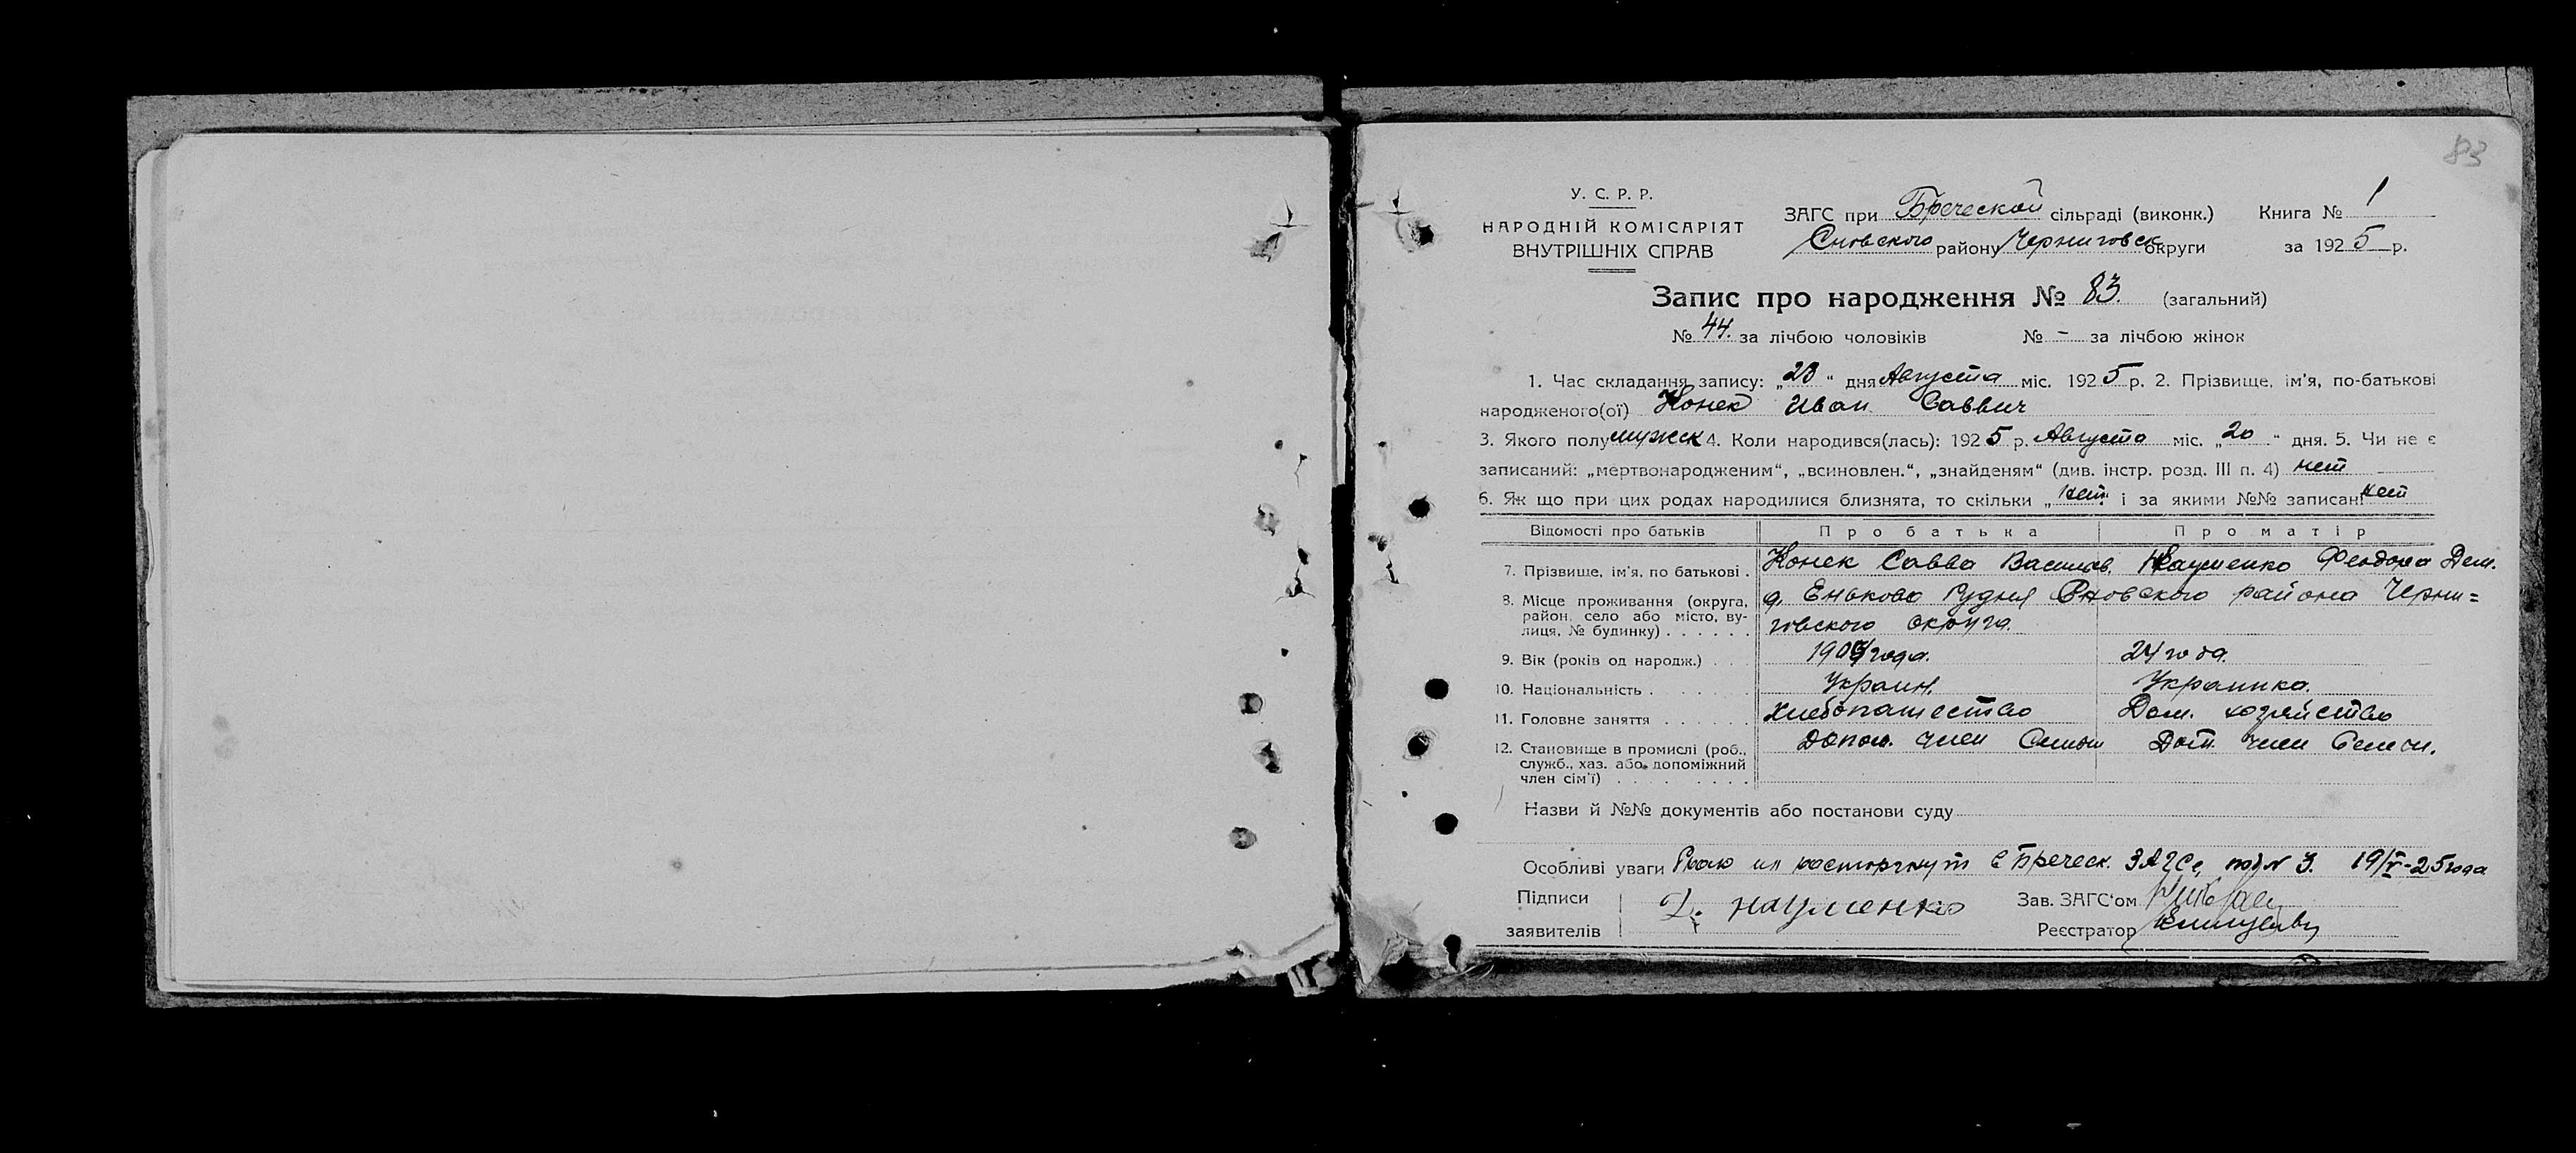 83
У. С. Р. Р.
НАРОДНІЙ КОМІСАРІЯТ
ВНУТРІШНІХ СПРАВ
ЗАГС при Бреческой сільраді (виконк.) Книга № 1
Сновского району Черниговск округи за 1925 р.
Запис про народження № 83. (загальний)
№ 44. за лічбою чоловіків № – за лічбою жінок
1. Час складання запису: „ “ дня Августа міс. 1925 р. 2. Прізвище, ім'я, по-батькові
народженого(ої) Конек Иван Саввич
3. Якого полу мужск 4. Коли народився(лась): 1925 р. Августа міс. „20“ дня. 5. Чи не є
записаний: „мертвонародженим“, „всиновлен.“, „знайденям“ (див. інстр. розд. III п. 4) нет
6. Як що при цих родах народилися близнята, то скільки „нет“ і за якими №№ записані нет
Відомості про батьків Про батька Про матір
7. Прізвище, ім'я, по батькові . Конек Савва Васильев. Науменко Феодора Дем.
8. Місце проживання (округа, район, село або місто, вулиця, № будинку) . . . . . . д. Енькова Рудня Сновского района Черни=
говского округа.
9. Вік (років од народж.) . . . года. 24 года.
10. Національність . . . . . . Украин. Украинка.
11. Головне заняття . . . . . . Хлебопашество Дом. хозяйство
12. Становище в промислі (роб., служб., хаз. або допоміжний член сім'ї) . . . . . . . . Допом. член Семьи Доп. член Семьи.
Назви й №№ документів або постанови суду
Особливі уваги расторгнут в Бреческ. ЗАГСе, под № 3. 19/V-25 года
Підписи
заявителів
Науменко
Зав. ЗАГС'ом
Реєстратор